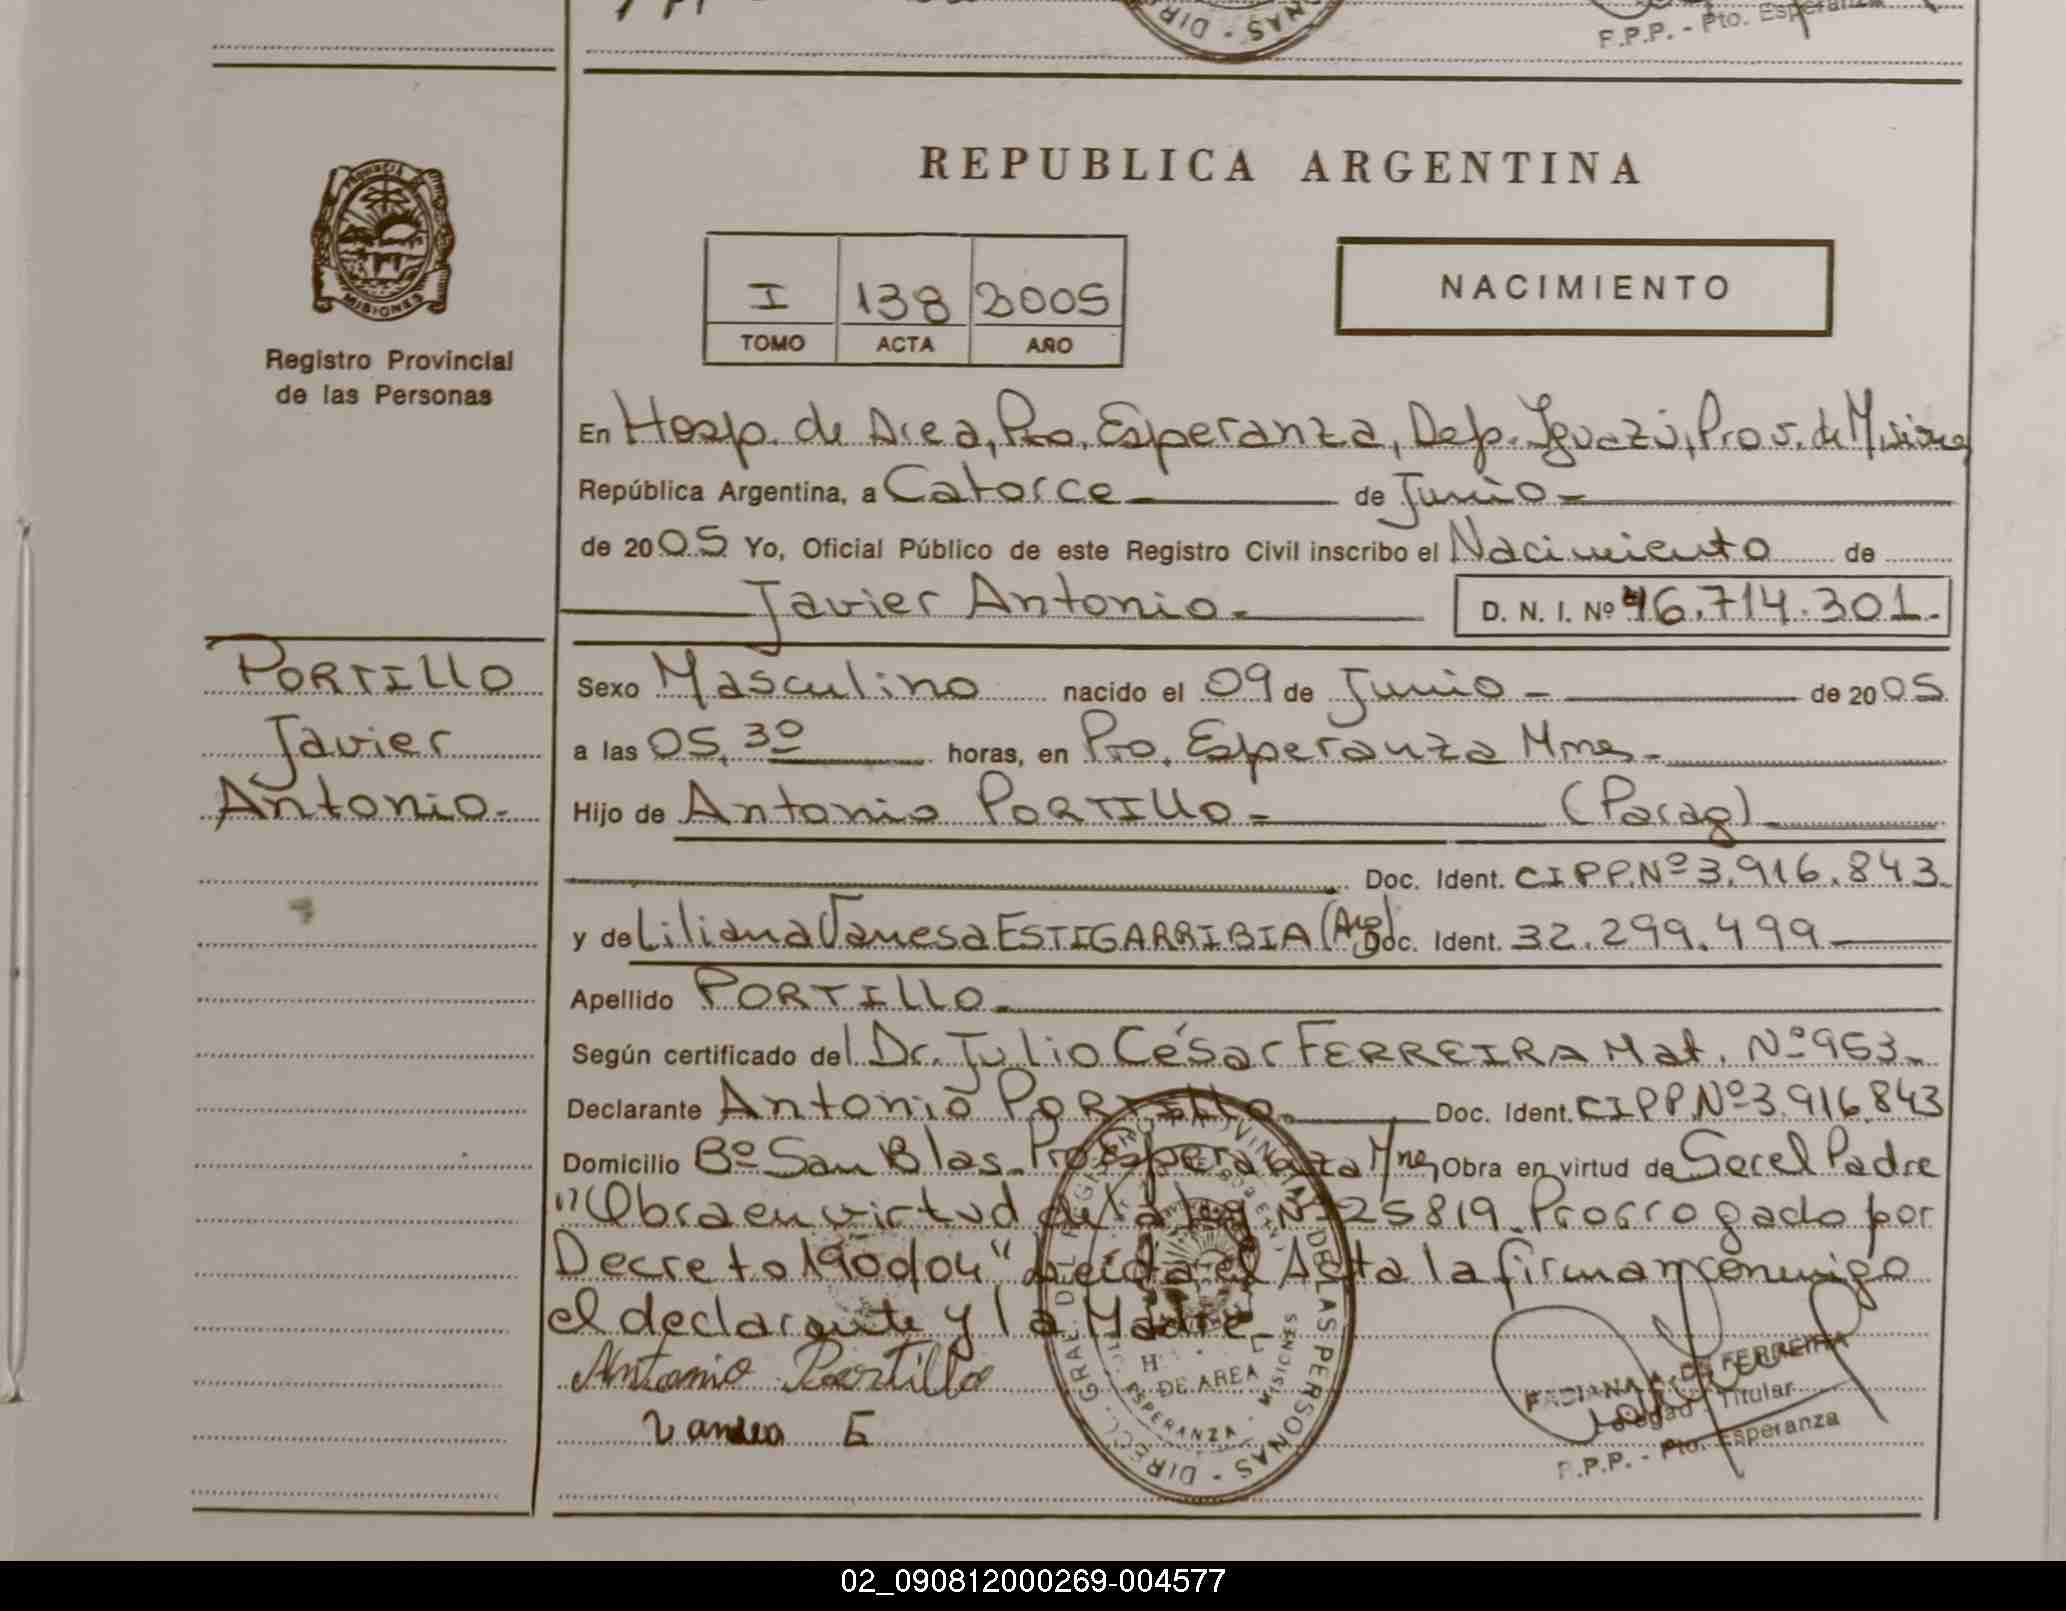 F.P.P. - Pto. Esperanza
MISIONES
Registro Provincial
de las Personas
REPUBLICA ARGENTINA
I 138 2005
TOMO ACTA AÑO
NACIMIENTO
En Hosp. de Area, Pto. Esperanza, Dep. Iguazú, Prov. de Misiones
República Argentina, a Catorce de Junio
de 2005 Yo, Oficial Público de este Registro Civil inscribo el Nacimiento de
Javier Antonio D. N. I. Nº 46.714.301.-
PORTILLO
Javier
Antonio.-
Sexo Masculino nacido el 09 de Junio de 2005
a las 05,30 horas, en Pto. Esperanza Mnes.
Hijo de Antonio PORTILLO (Parag)
Doc. Ident. CIPP.Nº3.916.843.
y de Liliana Vanesa ESTIGARRIBIA (Arg) Doc. Ident. 32.299.499
Apellido PORTILLO.
Según certificado del Dr. Julio César FERREIRA Mat. Nº 953.
Declarante Antonio PORTILLO. Doc. Ident. CIPP.Nº3.916.843
Domicilio Bº San Blas. Pto Esperanza Mnes, Obra en virtud de Ser el Padre
"Obra en virtud de la Ley Nº 25819. Prorrogado por
Decreto 190d/04" Leida el Acta la firman conmigo
el declarante y la Madre.
Antonio Portillo
Vanesa E
DE AREA
ESPERANZA - MISIONES
DE LAS PERSONAS - DIRECC. GRAL. DEL
FABIANA A. DE FERREIRA
Titular
F.P.P. - Pto. Esperanza
02_090812000269-004577